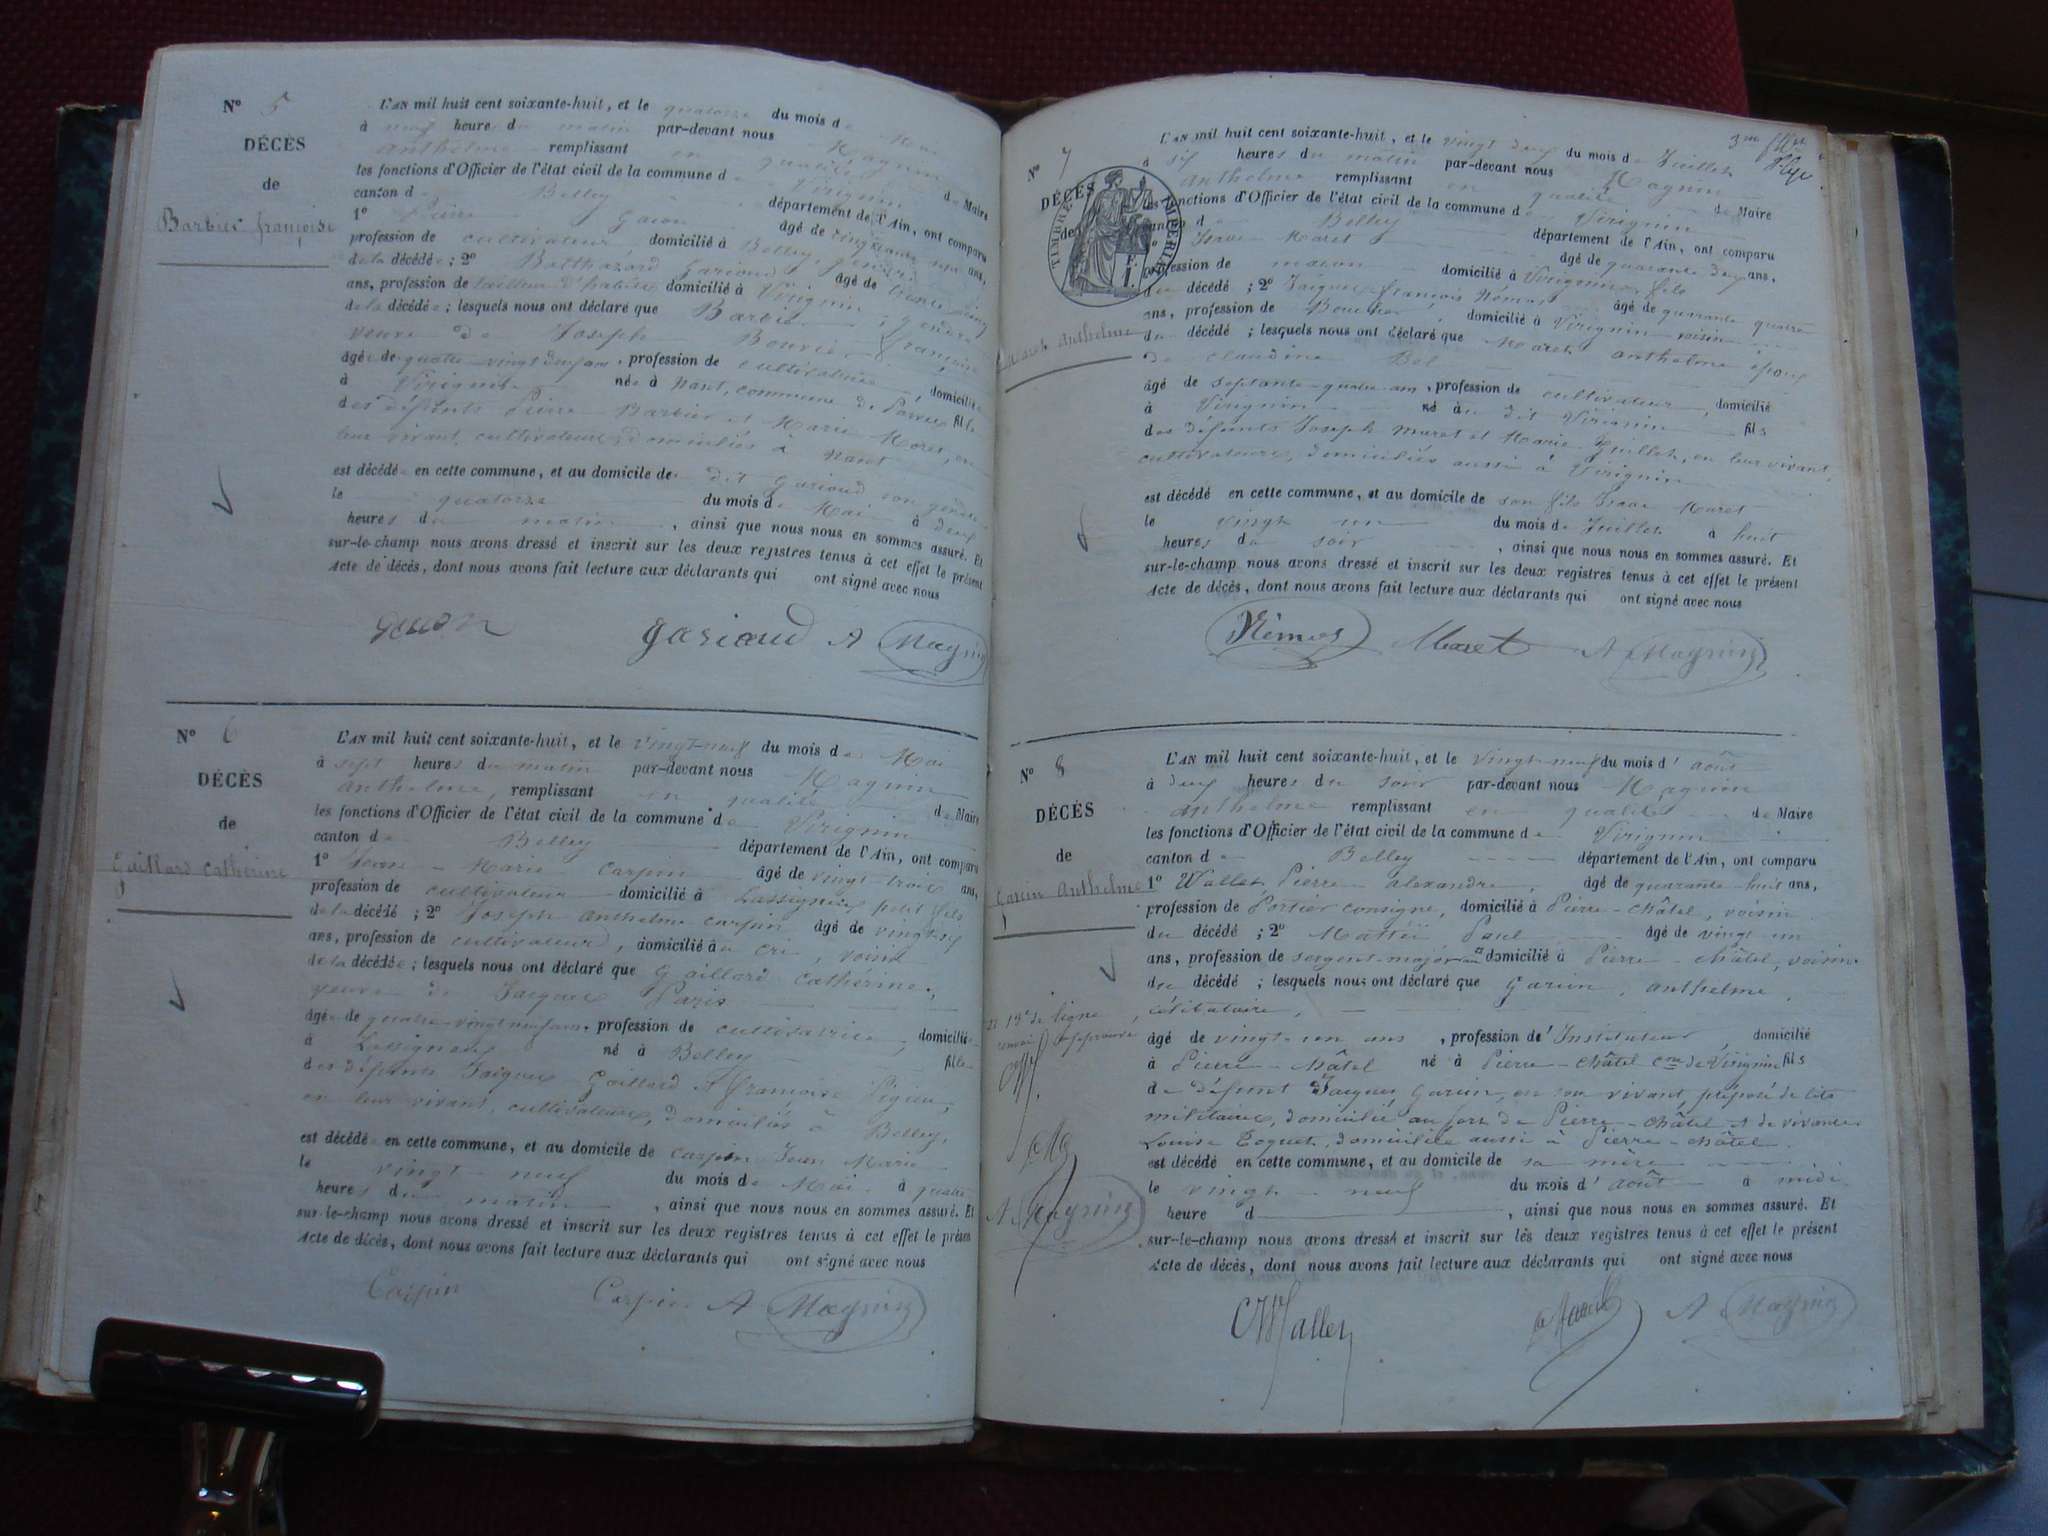 N° 5
DÉCÈS
de
Barbier françoise
L'AN mil huit cent soixante-huit, et le quatorze du mois de Mai
à neuf heures du matin par-devant nous Magnin
Anthelme remplissant en qualité de Maire
les fonctions d'Officier de l'état civil de la commune de Virignin
canton de Belley département de l'Ain, ont comparu
1° Pierre âgé de ans,
profession de cultivateur domicilié à Belley, gendre
de la décédée ; 2° Balthazard Gariaud âgé de trente cinq
ans, profession de tailleur d'habits domicilié à Virignin, gendre
de la décédée ; lesquels nous ont déclaré que Barbier françoise
veuve de Joseph Bouvier
âgée de quatre-vingt deux ans, profession de cultivatrice domiciliée
à Virignin née à Nant, commune de Parves fille
des défunts Pierre Barbier et Marie Moret, en
leur vivant, cultivateurs, domiciliés à Nant
est décédée en cette commune, et au domicile de dit Gariaud son gendre
le quatorze du mois de Mai à deux
heures du matin, ainsi que nous nous en sommes assuré. Et
sur-le-champ nous avons dressé et inscrit sur les deux registres tenus à cet effet le présent
Acte de décès, dont nous avons fait lecture aux déclarants qui ont signé avec nous
gariaud A Magnin
N° 6
DÉCÈS
de
Gaillard Catherine
L'AN mil huit cent soixante-huit, et le vingt-neuf du mois de Mai
à sept heures du matin par-devant nous Magnin
Anthelme, remplissant en qualité de Maire
les fonctions d'Officier de l'état civil de la commune de Virignin
canton de Belley département de l'Ain, ont comparu
1° Jean-Marie Carpin âgé de vingt-trois ans,
profession de cultivateur domicilié à Lassignieu petit fils
de la décédée ; 2° Joseph Anthelme Carpin âgé de vingt-six
ans, profession de cultivateur, domicilié à voisin
de la décédée ; lesquels nous ont déclaré que Gaillard Catherine,
veuve de Jacques Paris
âgée de quatre-vingt neuf ans, profession de cultivatrice, domiciliée
à Lassignieu né à Belley fille
des défunts Jacques Gaillard et françoise Pigieu,
en leur vivant, cultivateurs, domiciliés à Belley,
est décédée en cette commune, et au domicile de Carpin Jean Marie
le vingt-neuf du mois de Mai à quatre
heures du matin, ainsi que nous nous en sommes assuré. Et
sur-le-champ nous avons dressé et inscrit sur les deux registres tenus à cet effet le présent
Acte de décès, dont nous avons fait lecture aux déclarants qui ont signé avec nous
Carpin Carpin A Magnin
N° 7
DÉCÈS
de
Maret Anthelme
TIMBRE IMPÉRIAL
L'AN mil huit cent soixante-huit, et le vingt deux du mois de Juillet
à six heures du matin par-devant nous Magnin
Anthelme remplissant en qualité de Maire
les fonctions d'Officier de l'état civil de la commune de Virignin
canton de Belley département de l'Ain, ont comparu
1° Isaac Maret âgé de quarante deux ans,
profession de maçon domicilié à Virignin, fils
du décédé ; 2° Jacques françois Némos âgé de quarante quatre
ans, profession de domicilié à Virignin voisin
du décédé ; lesquels nous ont déclaré que Maret Anthelme époux
de claudine Bel
âgé de septante-quatre ans, profession de cultivateur, domicilié
à Virignin né au dit Virignin fils
des défunts Joseph Maret et Marie Guillot, en leur vivant,
cultivateurs, domiciliés aussi à Virignin
est décédé en cette commune, et au domicile de son fils Isaac Maret
le vingt un du mois de Juillet à huit
heures du soir, ainsi que nous nous en sommes assuré. Et
sur-le-champ nous avons dressé et inscrit sur les deux registres tenus à cet effet le présent
Acte de décès, dont nous avons fait lecture aux déclarants qui ont signé avec nous
Némos Maret A Magnin
N° 8
DÉCÈS
de
Garin Anthelme
L'AN mil huit cent soixante-huit, et le vingt-neuf du mois d'août
à deux heures du soir par-devant nous Magnin
Anthelme remplissant en qualité de Maire
les fonctions d'Officier de l'état civil de la commune de Virignin
canton de Belley département de l'Ain, ont comparu
1° Wallet Pierre alexandre, âgé de quarante-huit ans,
profession de Portier consigne, domicilié à Pierre-Châtel, voisin
du décédé ; 2° Mattéi Paul âgé de vingt-un
ans, profession de sergent-major au domicilié à Pierre-Châtel, voisin
du décédé ; lesquels nous ont déclaré que Garin, Anthelme,
célibataire,
de ligne
approuvé
âgé de vingt-un ans, profession d'Instituteur, domicilié
à Pierre-Châtel né à Pierre-Châtel Cne de Virignin fils
de défunt Jacques Garin, en son vivant, préposé de lits
militaires, domicilié au fort de Pierre-Châtel et de vivante
Louise Poquet, domiciliée aussi à Pierre-Châtel.
est décédé en cette commune, et au domicile de sa mère
le vingt-neuf du mois d'août à midi
heure d , ainsi que nous nous en sommes assuré. Et
sur-le-champ nous avons dressé et inscrit sur les deux registres tenus à cet effet le présent
Acte de décès, dont nous avons fait lecture aux déclarants qui ont signé avec nous
A Magnin
Wallet A Magnin